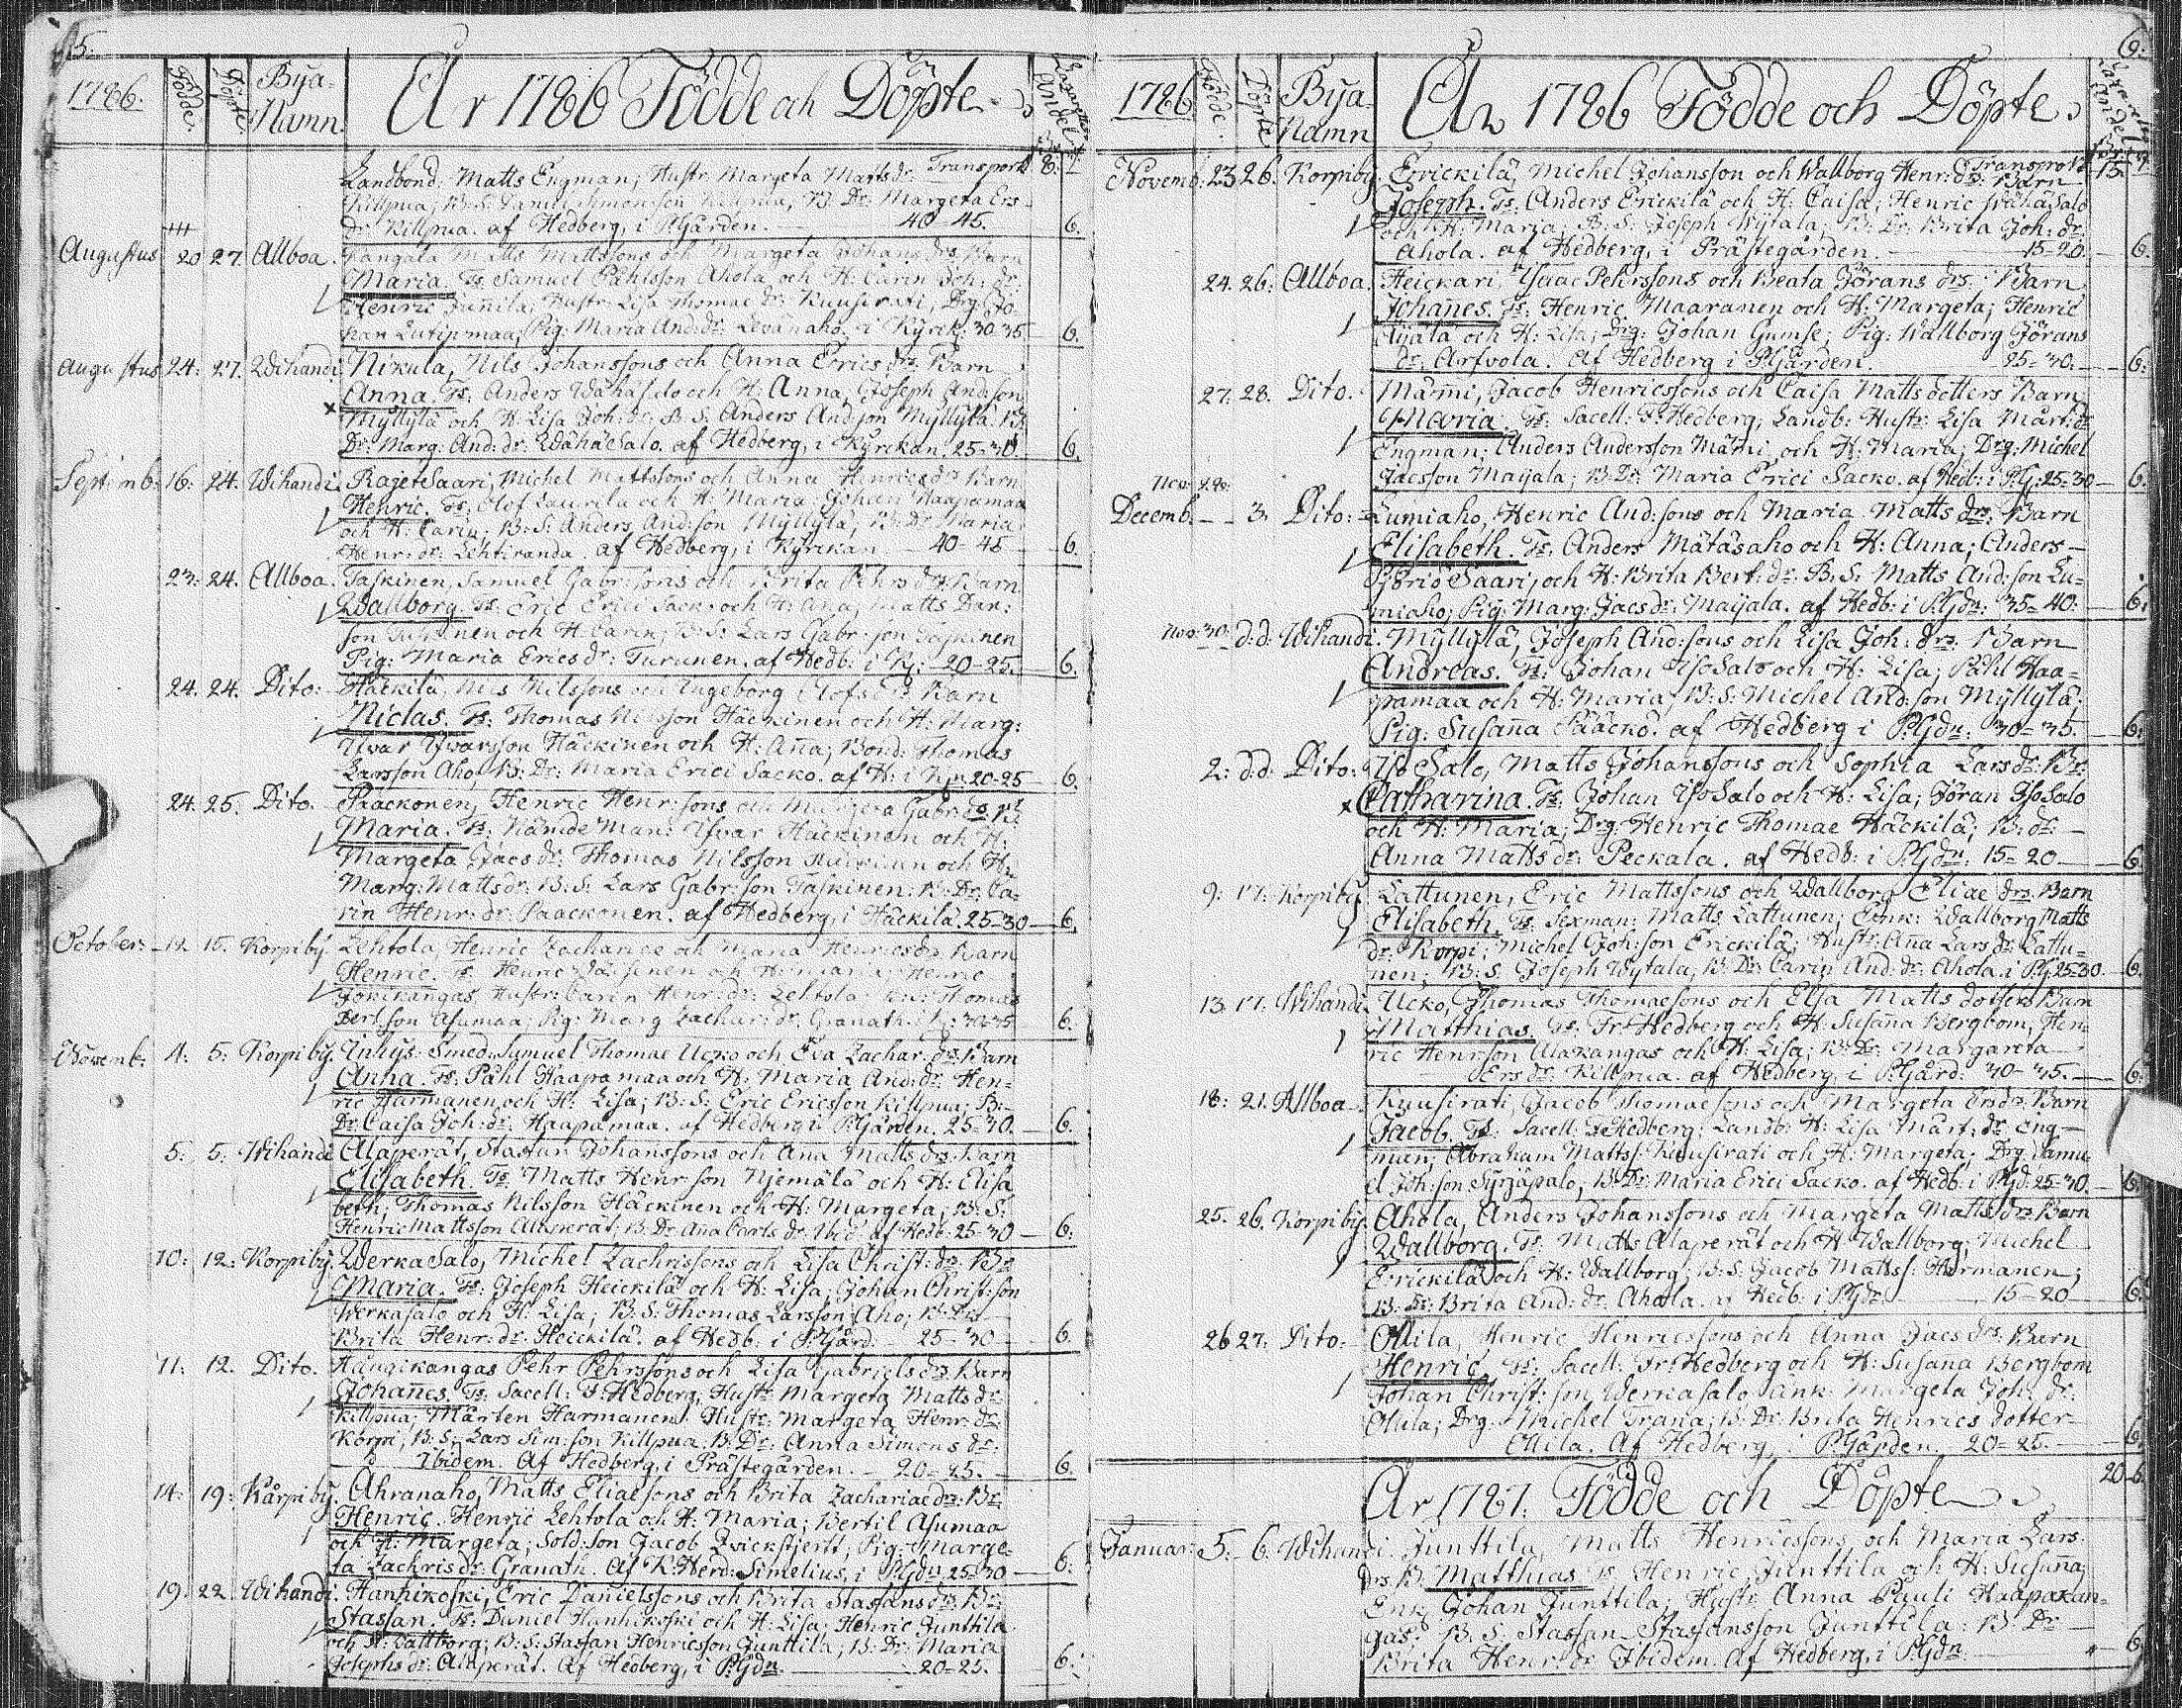 5.
1786. Födde. Döpte. Bya-Namn. År 1786 Födde och Döpte.
Landbond: Matts Engman; Hustr: Margeta Martsdr. Transport 8:
Killpua; B: S: Daniel Simonsson Killpua, B: Dr: Margeta Ers
dr Killpua. af Hedberg, i P:Gården. 40-45. 6.
Augustus 20 27. Allboa. Matts Mattssons och Margeta Johans drs Barn
Maria. Ts. Samuel Påhlsson Ahola och H: Carin Joh: dr:
Henric Junnila, Hustr: Lisa Thomae dr: Kuusirati, Drg: Jo-
han Pig: Maria And: dr: Levänaho. i Kyrk: 30-35. 6.
Augustus 24: 27. Wihandi Nikula, Nils Johanssons och Anna Erics drs Barn
Anna. Ts: Anders Wähäsalo och H: Anna, Joseph Andsson
Myllylä och H: Lisa Joh: dr: B: S: Anders Andson Myllylä. B:
Dr: Marg: And: dr: WähäSalo. af Hedberg, i Kyrckan. 25-30. 6.
Septemb: 16: 24. Wihandi. RajeSaari, Michel Mattssons och Anna Henrics dr Barn
Henric. Ts: Olof Laurila och H: Maria; Johan Haapamaa
och H: Carin; B: S: Anders And:son Myllylä, B: Dr: Maria
Henr: dr: Lehtiranda. af Hedberg, i Kyrckan 40-45 6.
23: 24. Allboa. Taskinen, Samuel Gabr:sons och Brita Pehrs drs Barn
Wallborg. Ts: Eric Erici Sacko och H: Ana; Matts Dan:
son Taskinen och H: Carin; B: S: Lars Gabr:son Taskinen
Pig: Maria Erics dr: Turunen. af Hedb: i K: 20-25. 6.
24. 24. Dito: Häckilä, Nils Nilssons och Ingeborg Olofs drs Barn
Niclas. Ts: Thomas Nilsson Häckinen och H: Marg:
Yfvar Yfvarsson Häckinen och H: Aña; Bond: Thomas
Larsson Aho, B: Dr: Maria Erici Sacko. af H: i Kyr: 20-25 6.
24. 25. Dito. Pääckönen, Henric Henr:sons och Margeta Gabr: ds Bn
Maria. Ts: Nämde Man: Yfvar Häckinen och H:
Margeta Jacs dr: Thomas Nilsson Häckinen och H:
Marg: Matts dr: B: S: Lars Gabr:son Taskinen; B: Dr: Ca-
rin Henr: dr: Pääckonen. af Hedberg, i Häckilä. 25-30 6.
October 15. Korpiby. Lehtola, Henric Zachariae och Maria Henrics drs Barn
Henric. Ts: Henric och H: Maria; Henric
Jokikangas, Hustr: Carin Henr: dr: Lehtola; Thomas
Bert:son Asumaa; Pig: Marg Zachar: dr. Granath. i K: 30-35 6.
Novemb: 4: 5: Korpiby. Inhys: Smed: Samuel Thomae Ucko och Eva Zachar: drs Barn
Anna. Ts: Påhl Haapamaa och H: Maria And: dr. Hen-
ric Harmanen, och H: Lisa; B: S: Eric Ericsson Killpua; B:
Dr: Caisa Joh: dr: Haapamaa. af Hedberg i P:Gården. 25-30. 6.
5: 5: Wihandi Alaperät, Staffan Johanssons och Ana Matts drs Barn
Elisabeth. Ts: Matts Henr:son Njemälä och H: Elisa
beth; Thomas Nilsson Häckinen och H: Margeta; B: S:
Henric Mattsson Alaperät. B: Dr: Aña Carls dr: Ibid: af Hedb: 25-30 6.
10: 12: Korpiby. WerkaSalo, Michel Zachrissons och Lisa Christ: drs Bn
Maria. Ts: Joseph Heickilä och H: Lisa; Johan Christ:son
Werkasalo och H: Lisa; B: S: Thomas Larsson Aho; B: Dr:
Brita Henr: dr: Heickilä. af Hedb: i P:Gård. 25-30 6.
11: 12. Dito. Haugikangas Pehr Pehrssons och Lisa Gabriels drs Barn
Johañes. Ts: Sacell: F: Hedberg, Hustr: Margeta Matts dr:
Killpua; Mårten Harmanen. Hustr: Margeta Henr: dr:
Korpi; B: S: Lars Sim:son Killpua; B: Dr: Anna Simons dr:
Ibidem. Af Hedberg, i Prästegården. 20-25. 6.
14: 19: Kårpiby. Ahranaho, Matts Eliaesons och Brita Zachariae dr: Bn
Henric. Henric Lehtola och H: Maria; Bertil Asumaa
och H: Margeta; Sold:son Jacob Qvickstjert; Pig: Marge-
ta Zachris dr: Granath. Af K: Herd: Simelius, i P:Gdn 25-30 6.
19. 22. Wihandi. Hanhikoski, Eric Danielssons och Brita Staffans drs Bn
Staffan. Ts: Daniel Hanhikoski och H: Lisa; Henric Junttila
och H: Wallborg; B: S: Staffan Henricsson Junttila; B: Dr: Maria
Josephs dr: Alaperät. Af Hedberg, i P:Gdn 20-25. 6.
6:
1786 Födde. Döpte. Bya-Namn År 1786 Födde och Döpte.
Novemb: 23 26. Korpiby. Erickilä, Michel Johansson och Wallborg Henr: drs Barn Transport 13.
Joseph. Ts: Anders Erickilä och H: Caisa; Henric WähäSalo
och H: Maria; B: S: Joseph Wytala; B: Dr: Brita Joh: dr:
Ahola. af Hedberg, i Prästegården. 15-20. 6.
24. 26: Allboa. Heickari, Ysaac Pehrssons och Beata Jörans drs: Barn
Johañes. Ts: Henric Maaranen och H: Margeta; Henric
Äijälä och H: Lisa; Drg: Johan Gumse; Pig: Wallborg Jörans
dr: Arfvola. Af Hedberg i P:Gården. 25-30. 6.
27. 28. Dito. Mämi, Jacob Henricssons och Caisa Matts dotters Barn
Maria. Ts: Sacell: F: Hedberg; Landb: Hustr: Lisa Mårt: dr
Engman; Anders Andersson Mämi och H: Maria; Drg: Michel
Jacsson Maijala; B: Dr: Maria Erici Sacko. af Hedb: i P:G: 25-30 6.
Nov: 28:
Decemb. 3. Dito: Lumiaho, Henric And:sons och Maria Matts drs: Barn
Elisabeth. Ts: Anders Mätäsaho och H: Anna; Anders
Saari, och H: Brita Bert: dr. B: S: Matts And:son Lu-
miaho; Pig: Marg: Jacs dr: Maijala. af Hedb: i P:Gdn: 35-40: 6.
Nov: 30. d: d: Wihandi. Myllylä, Joseph And:sons och Lisa Joh: drs: Barn
Andreas. Ts: Johan YsoSalo och H: Lisa; Påhl Haa-
pamaa och H: Maria; B: S: Michel And:son Myllylä;
Pig: Susaña Pääckö. af Hedberg i P:Gdn: 30-35. 6.
2: d: d: Dito: Yso Salo, Matts Johanssons och Sophia Lars dr: Bn
Catharina. Ts: Johan YsoSalo och H: Lisa; Jöran YsoSalo
och H: Maria; Drg: Henric Thomae Häckilä; B: dr:
Anna Matts dr: Peckala. af Hedb: i P:Gdn: 15-20 6.
9: 17: Korpiby. Lattunen, Eric Mattssons och Wallborg Eliae drs: Barn
Elisabeth. Ts: Sexman: Matts Lattunen; Enk: Wallborg Matts
dr: Korpi; Michel Joh:son Erickilä; Hustr: Aña Lars dr: Lattu-
nen; B: S: Joseph Wytala, B: Dr: Carin And: dr: Ahola. i P:G. 25-30. 6.
13. 17. Wihandi. Ucko, Thomas Thomaesons och Elsa Matts dotters Barn
Matthias. Ts: Fr: Hedberg och H: Susaña Bergbom; Hen-
ric Henr:son Alakangas och H: Lisa; B: Dr: Margareta
Ers dr: Killpua. af Hedberg, i P:Gård: 30-35. 6.
18: 21. Allboa. Kuusirati, Jacob Thomaesons och Margeta Ersdrs Barn
Jacob. Ts: Sacell: F: Hedberg; Landb: H: Lisa Mårt: dr: Eng-
man, Abraham Matts: Kuusirati och H: Margeta; Drg: Samu-
el Joh:son Syrjäpalo; B: Dr: Maria Erici Sacko. af Hedb: i P:Gd: 25-30. 6.
25. 26. Korpiby. Ahola, Anders Johanssons och Margeta Matts drs: Barn
Wallborg. Ts: Matts Alaperät och H: Wallborg; Michel
Erickilä och H: Wallborg; B: S: Jacob Matts: Harmanen;
B: Dr: Brita And: dr: Ahola. af Hedb: i P:Gdn 15-20 6.
26 27: Dito: Ollila, Henric Henricssons och Anna Jacs drs: Barn
Henric. Ts: Sacell: Fr: Hedberg och H: Susaña Bergbom
Johan Christ:son Werkasalo, Enk: Margeta Joh: dr:
Ollila; Drg: Michel Trana; B: Dr: Brita Henrics dotter
Ollila. Af Hedberg, i P:Gården. 20-25. 6.
20-6.
År 1787. Födde och Döpte.
Januar: 5. 6. Wihandi. Junttila, Matts Henricssons och Maria Lars
drs: B. Matthias. Ts: Henric Junttila och H: Susaña;
Enk: Johan Junttila; Hustr: Anna Pauli Haapakan-
gas. B: S: Staffan Staffansson Junttila: B: Dr
Brita Henr: dr: Ibidem. Af Hedberg, i P:Gdn 6.